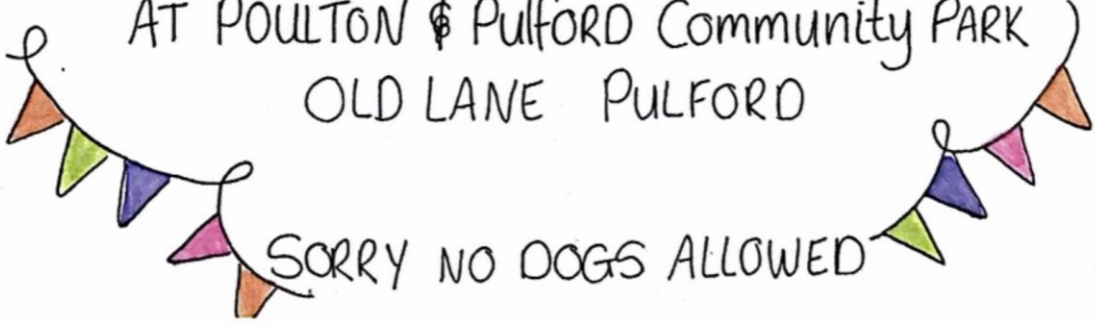 AT POULTON & PulfORD Community PARK
OLD LANE PULFORD
SORRY NO DOGS ALLOWED